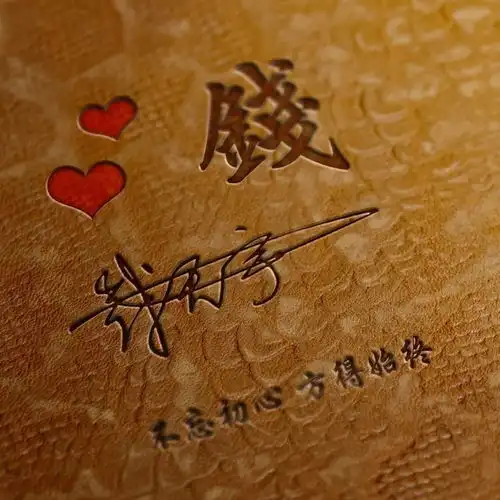 錢
不忘初心 方得始终